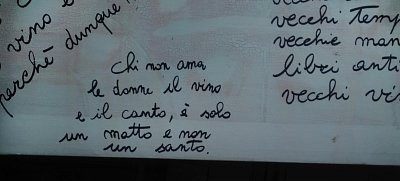 vino e
perchè dunque
chi non ama
le donne il vino
e il canto, è solo
un matto e non
un santo.
vecchi temp
vecchie man
libri anti
vecchi vi